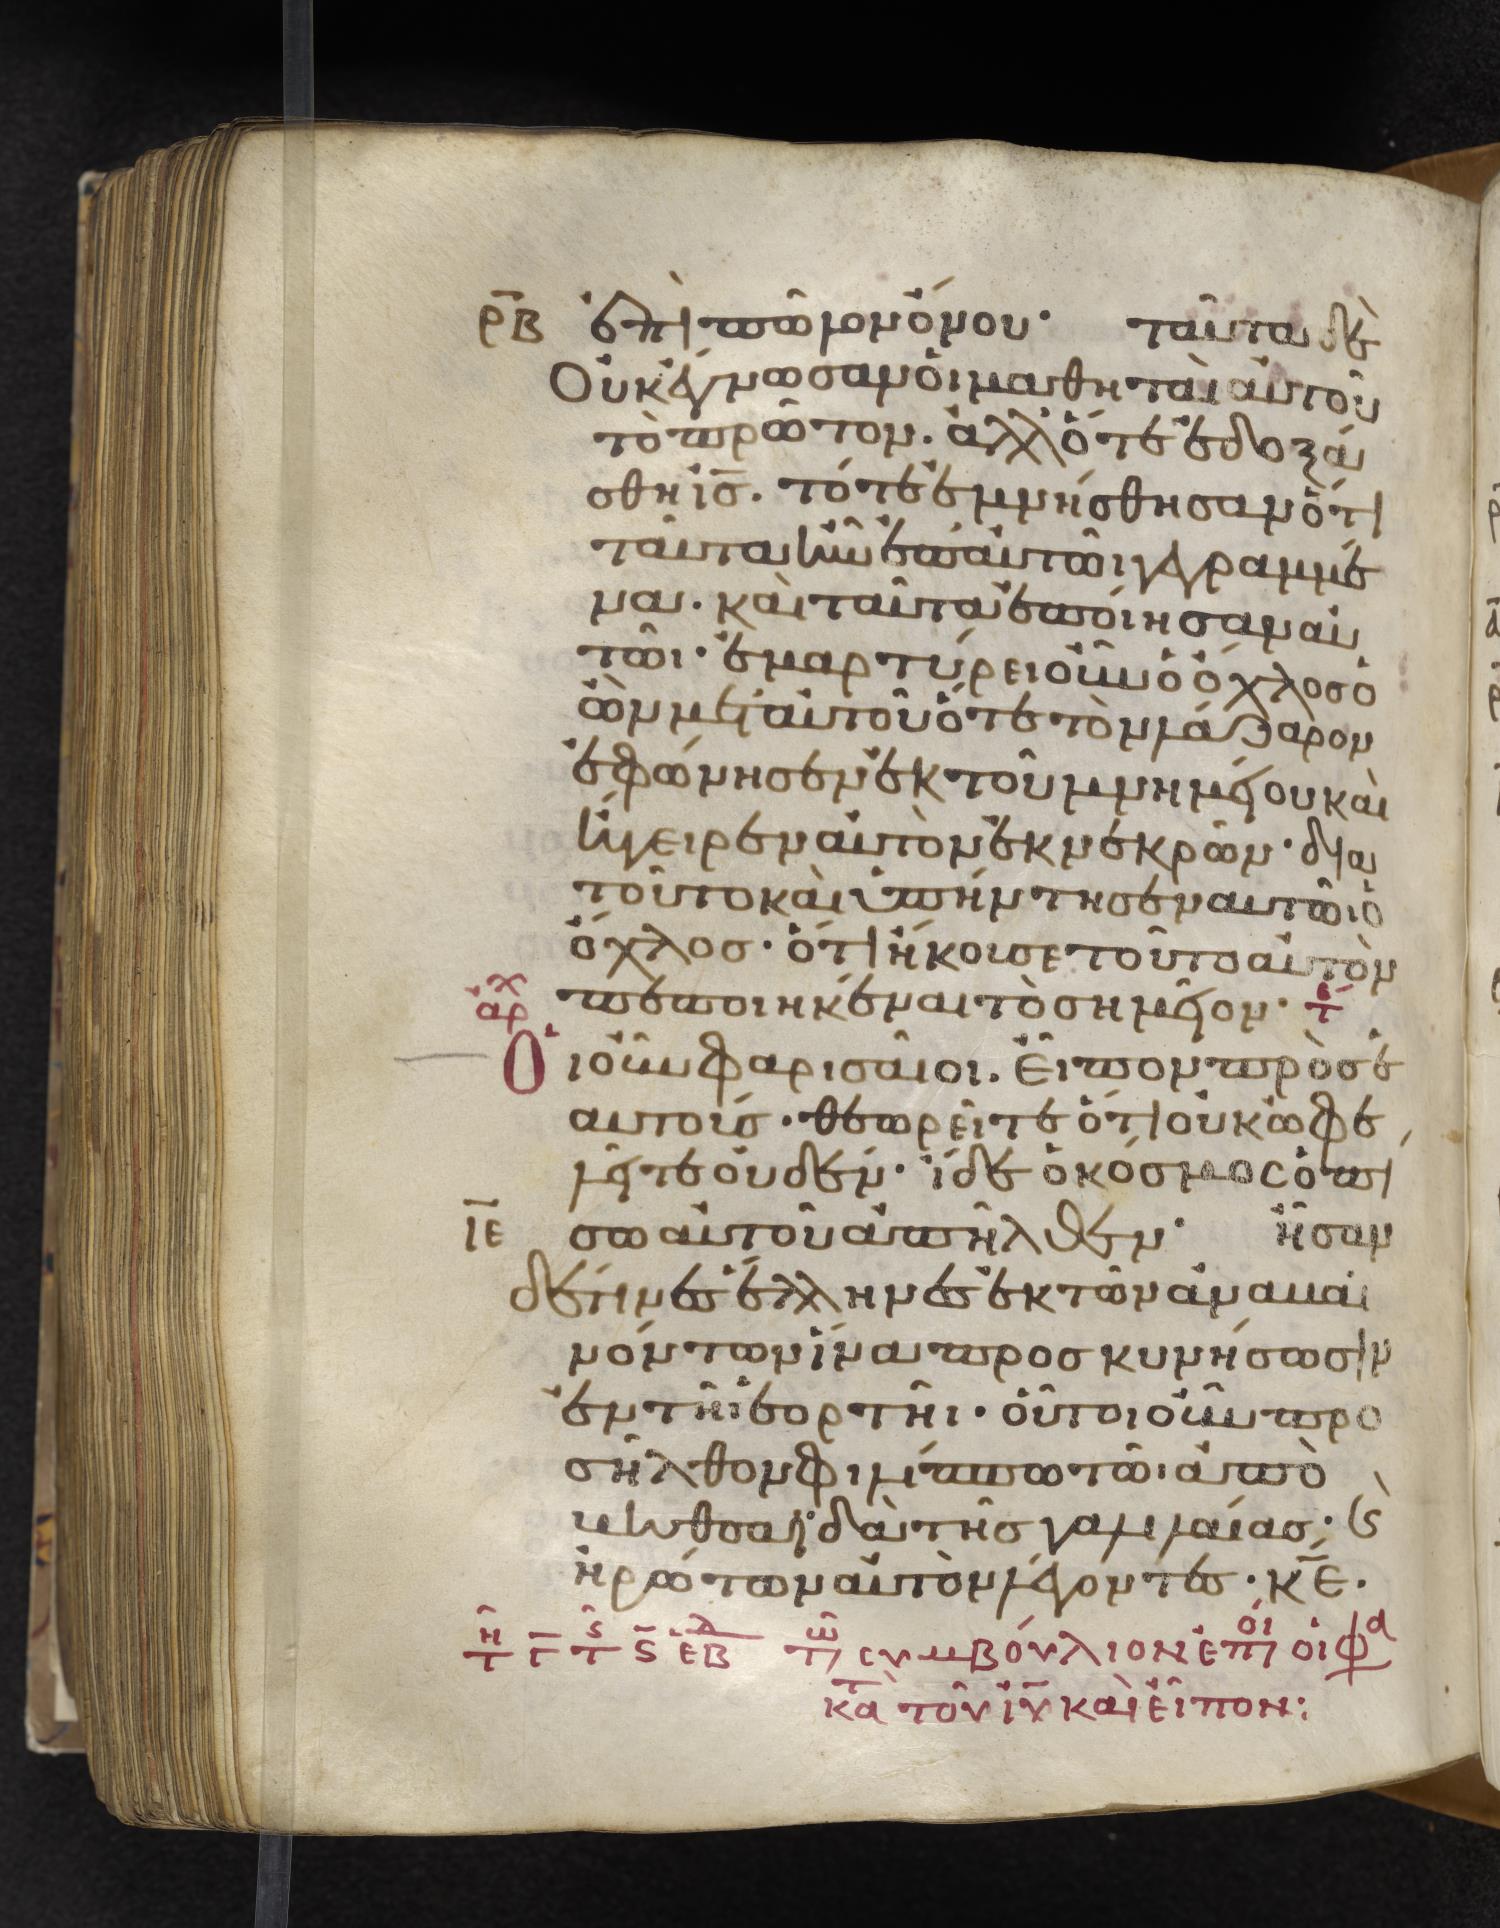 ρβ ἐπὶ πῶλον ὄνου· ταῦτα δὲ
Οὐκ ἔγνωσαν οἱ μαθηταὶ αὐτοῦ
τὸ πρῶτον. ἀλλ ὅτε ἐδοξά
σθη ις. τότε ἐμνήσθησαν ὅτι
ταῦτα ἦν ἐπ αὐτῶι γεγραμμέ
να. καὶ ταῦτα ἐποίησαν αὐ
τῶι· ἐμαρτύρει οὖν ὁ ὄχλος ὁ
ὢν μετ αὐτοῦ ὅτε τὸν λάζαρον
ἐφώνησεν ἐκ τοῦ μνημείου καὶ
ἤγειρεν αὐτὸν ἐκ νεκρῶν· δια
τοῦτο καὶ ὑπήντησεν αυτῶι ὁ
ὄχλος· ὅτι ἤκουσε τοῦτο αὐτὸν
πεποιηκέναι τὸ σημεῖον· τε
αρχ
Οἱ οὖν φαρισαῖοι. Εἶπον πρὸς ἑ
αυτούς· θεωρεῖτε ὅτι οὐκ ὠφε
λεῖτε οὐδέν· ἴδε ὁ κόσμος ὀπί
ιε σω αὐτοῦ ἀπῆλθεν· ἦσαν
δέ τινες ἕλληνες ἐκ τῶν ἀναβαι
νόντων ἵνα προσκυνήσωσιν
ἐν τῆι ἑορτῆι· οὗτοι οὖν προ
σῆλθον φιλίππω τῶι ἀπὸ
βηθσαϊδὰ τῆς γαλιλαίας· ϗ
ἠρώτων αὐτὸν λέγοντες· κε.
συμβούλιον ἐποί οἱ φα
κατ τὸν ιν καὶ εἶπον: